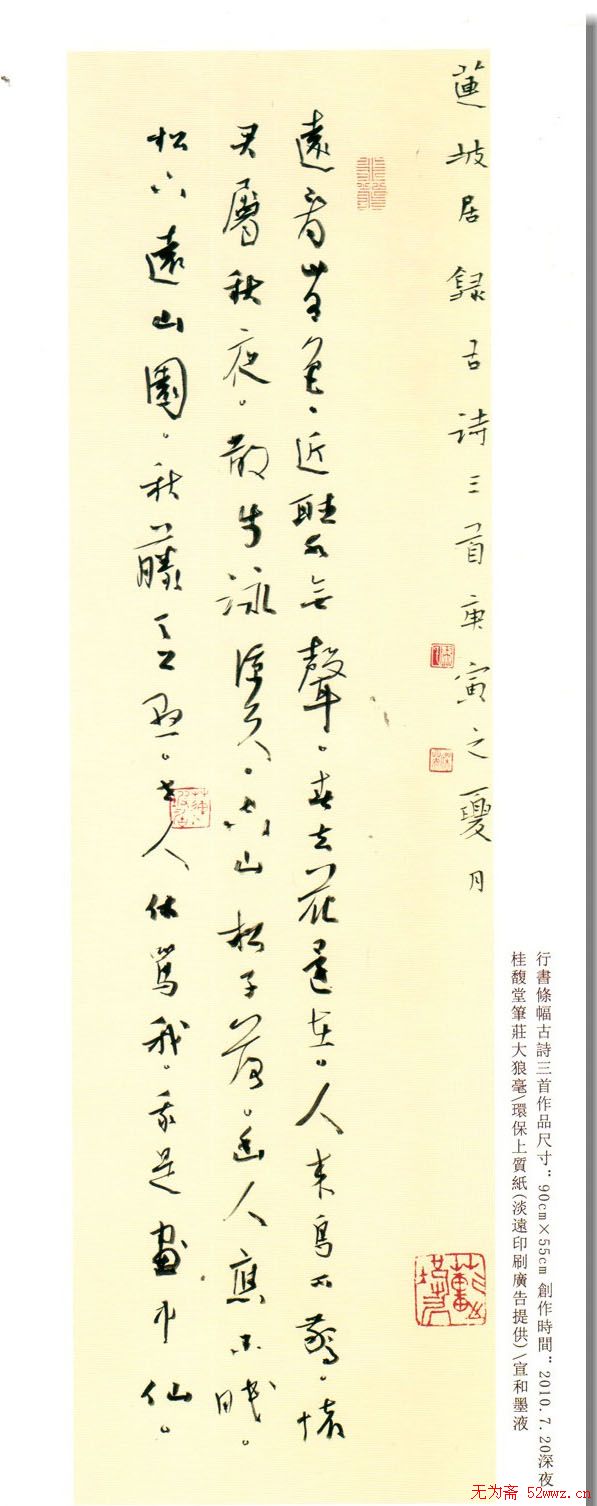 行書條幅古詩三首作品尺寸：90cm×55cm 創作時間：2010.7.20深夜
桂馥堂筆莊大狼毫/環保上質紙(淡遠印刷廣告提供)/宣和墨液
蓮坡居録古詩三首庚寅之夏月
遠看山有色、近聽水無聲。春去花還在。人來鳥不驚。懷
君屬秋夜。散步詠涼天。空山松子落。幽人應未眠。
松下遠山園。秋藤。人休罵我。我是畫中仙。
无为斋 52wwz.cn